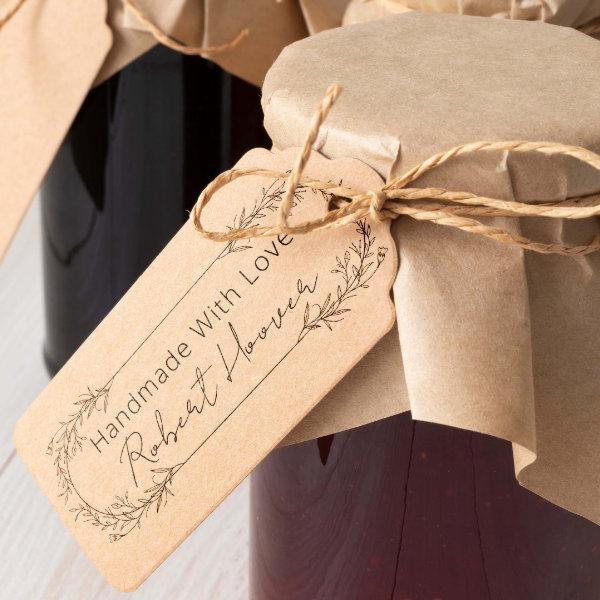 Handmade With Love
Robert Hoover